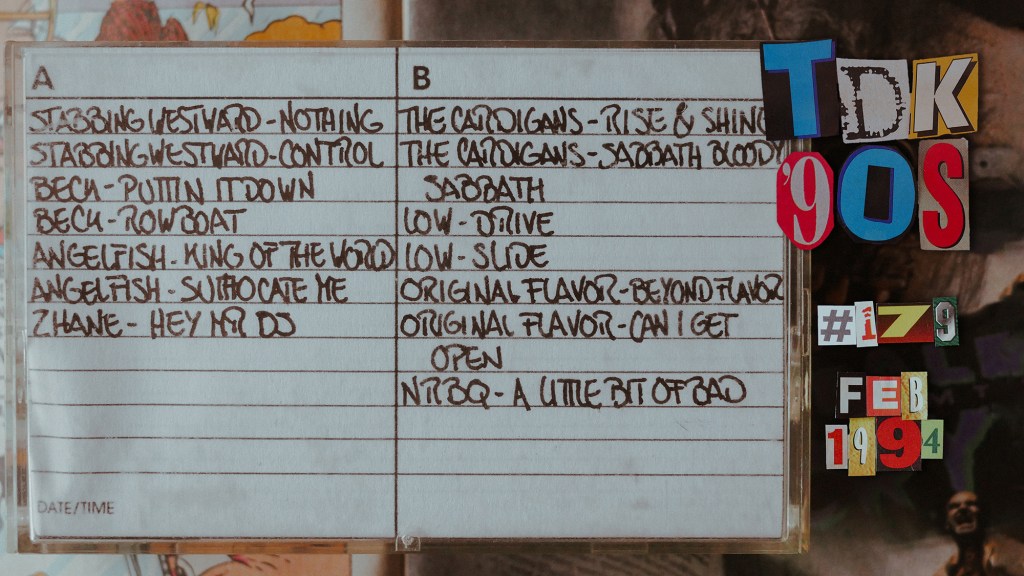 A
STABBING WESTWARD - NOTHING
STABBING WESTWARD - CONTROL
BECK - PUTTIN IT DOWN
BECK - ROWBOAT
ANGELFISH - KING OF THE WORLD
ANGELFISH - SUFFOCATE ME
ZHANE - HEY MR DJ
DATE/TIME
B
THE CARDIGANS - RISE & SHINE
THE CARDIGANS - SABBATH BLOODY
SABBATH
LOW - DRIVE
LOW - SLIDE
ORIGINAL FLAVOR - BEYOND FLAVOR
ORIGINAL FLAVOR - CAN I GET
OPEN
NRBQ - A LITTLE BIT OF BAD
TDK
'90S
#179
FEB
1994